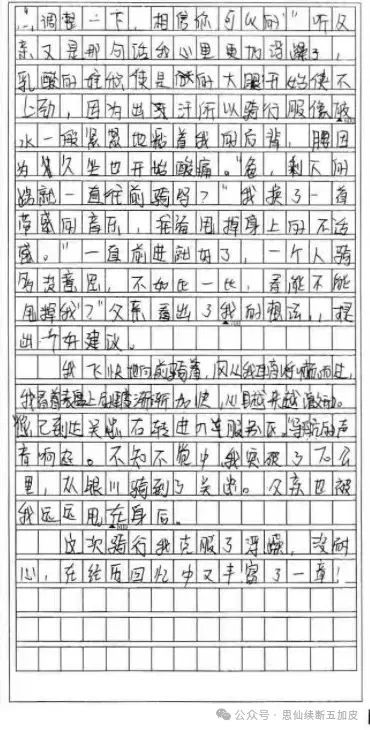 ，调整一下，相信你可以的！"听父
亲又是那句话我心里更加浮躁了，
乳酸的堆积使是的大腿开始使不
上劲，因为出汗所以骑行服像
水一般紧紧地粘着我的后背，腰因
为久坐也开始酸痛。"爸，剩下的
路就一直往前骑吗？"我换了一首
带感的音乐，甩掉身上的不适
感。"一直前进就好了，一个人骑
多没意思，不如比一比，看能不能
甩掉我？"父亲看出了我的想法，提
出一个好建议。
我飞快地向前骑着，风从我耳旁呼啸而过，
我看着表盘上的速度渐渐加快，心跳越来越激动。
"您已到达关 右转进入 服务区。"导航的声
音响起。不知不觉中我突破了70公
里，从银川骑到了关 。父亲也被
我远远甩在身后。
这次骑行我克服了浮躁，没耐
心，在经历回忆中又丰富了一章！
公众号·思仙续断五加皮